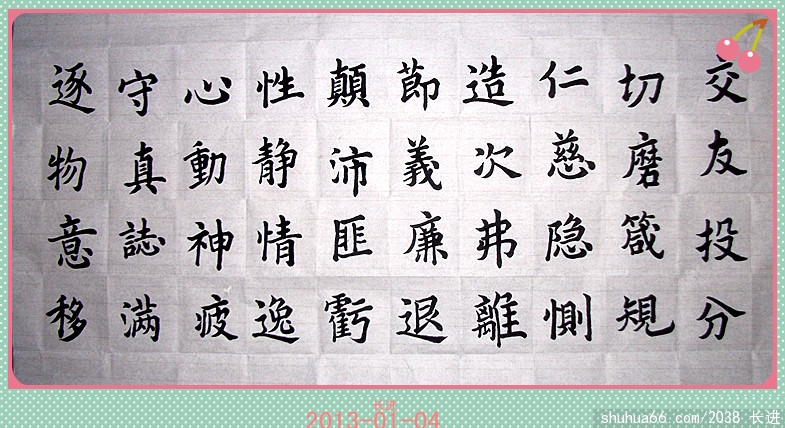 交友投分
切磨箴規
仁慈隐惻
造次弗離
節義廉退
顛沛匪虧
性静情逸
心動神疲
守真誌满
逐物意移
长进
2013-01-04
shuhua66.com/2038 长进